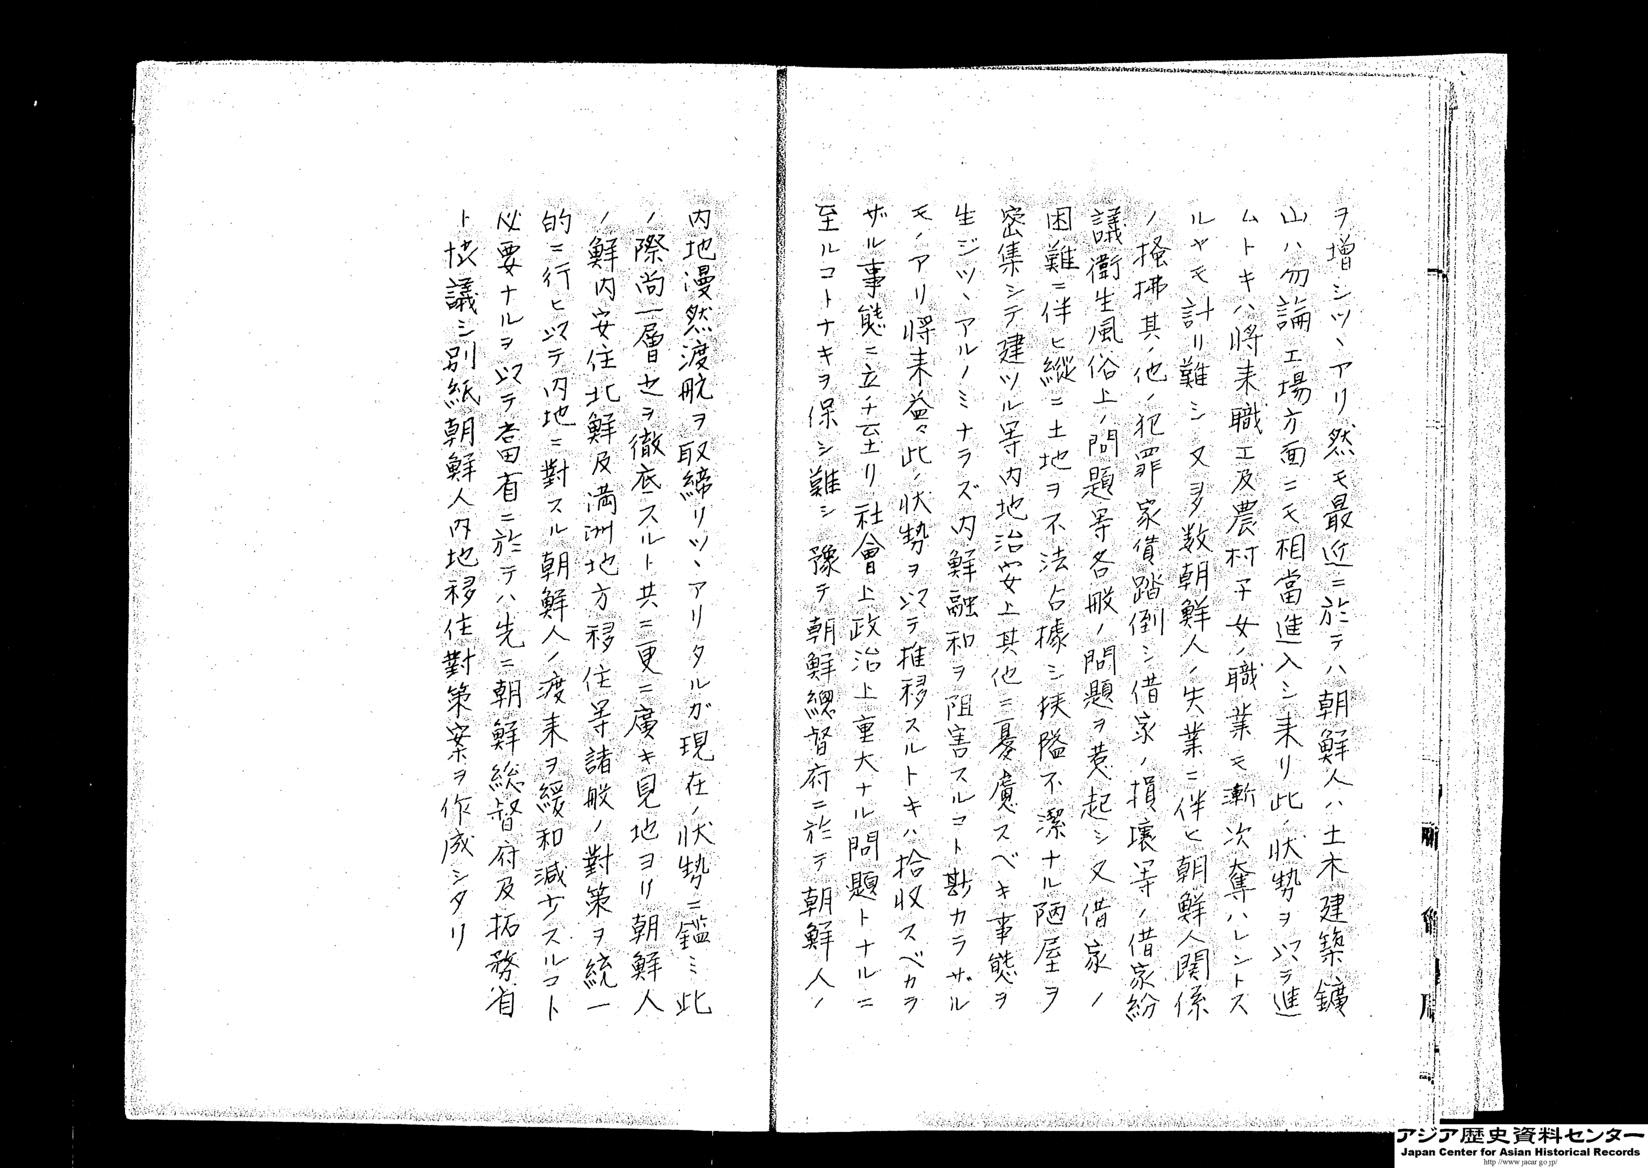 ヲ増シツヽアリ然モ最近ニ於テハ朝鮮人ハ土木建築鑛
山ハ勿論工場方面ニモ相當進入シ来リ此ノ状勢ヲ以テ進
ムトキハ将来職工及農村子女ノ職業モ漸次奪ハレントス
ルヤモ計リ難シ又多数朝鮮人ノ失業ニ伴ヒ朝鮮人関係
ノ掻拂其ノ他ノ犯罪家賃踏倒シ借家ノ損壊等ノ借家紛
議衛生風俗上ノ問題等各般ノ問題ヲ惹起シ又借家ノ
困難ニ伴ヒ縦ニ土地ヲ不法占據シ挟隘不潔ナル陋屋ヲ
密集シテ建ツル等内地治安上其他ニ憂慮スベキ事態ヲ
生ジツヽアルノミナラズ内鮮融和ヲ阻害スルコト尠カラザル
モノアリ将来益々此ノ状勢ヲ以テ推移スルトキハ拾収スベカラ
ザル事態ニ立チ至リ社會上政治上重大ナル問題トナルニ
至ルコトナキヲ保シ難シ豫テ朝鮮總督府ニ於テ朝鮮人ノ
内地漫然渡航ヲ取締リツヽアリタルガ現在ノ状勢ニ鑑ミ此
ノ際尚一層之ヲ徹底スルト共ニ更ニ廣キ見地ヨリ朝鮮人
ノ鮮内安住北鮮及満洲地方移住等諸般ノ對策ヲ統一
的ニ行ヒ以テ内地ニ對スル朝鮮人ノ渡来ヲ緩和減少スルコト
必要ナルヲ以テ當省ニ於テハ先ニ朝鮮総督府及拓務省
ト協議シ別紙朝鮮人内地移住對策案ヲ作成シタリ
アジア歴史資料センター
Japan Center for Asian Historical Records
http://www.jacar.go.jp/